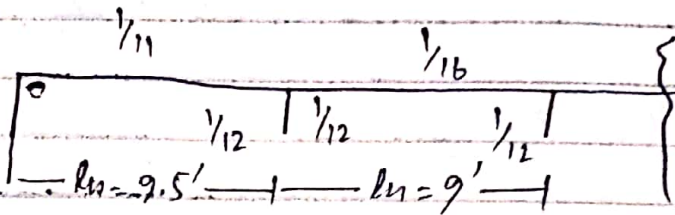 1/11 1/16
0 1/12 1/12 1/12
ln = 9.5' ln = 9'